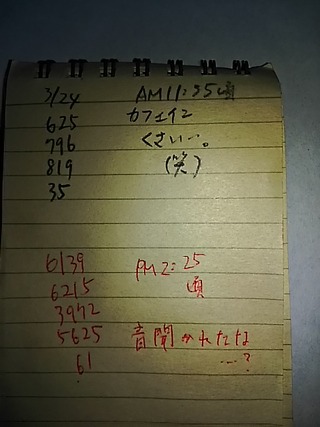 3/24 AM11:35頃
625 カフェイン
796 くさい…。
819 (笑)
35
6139 PM2:25
6215 頃
3972
5625 音聞かれたな
61 …?